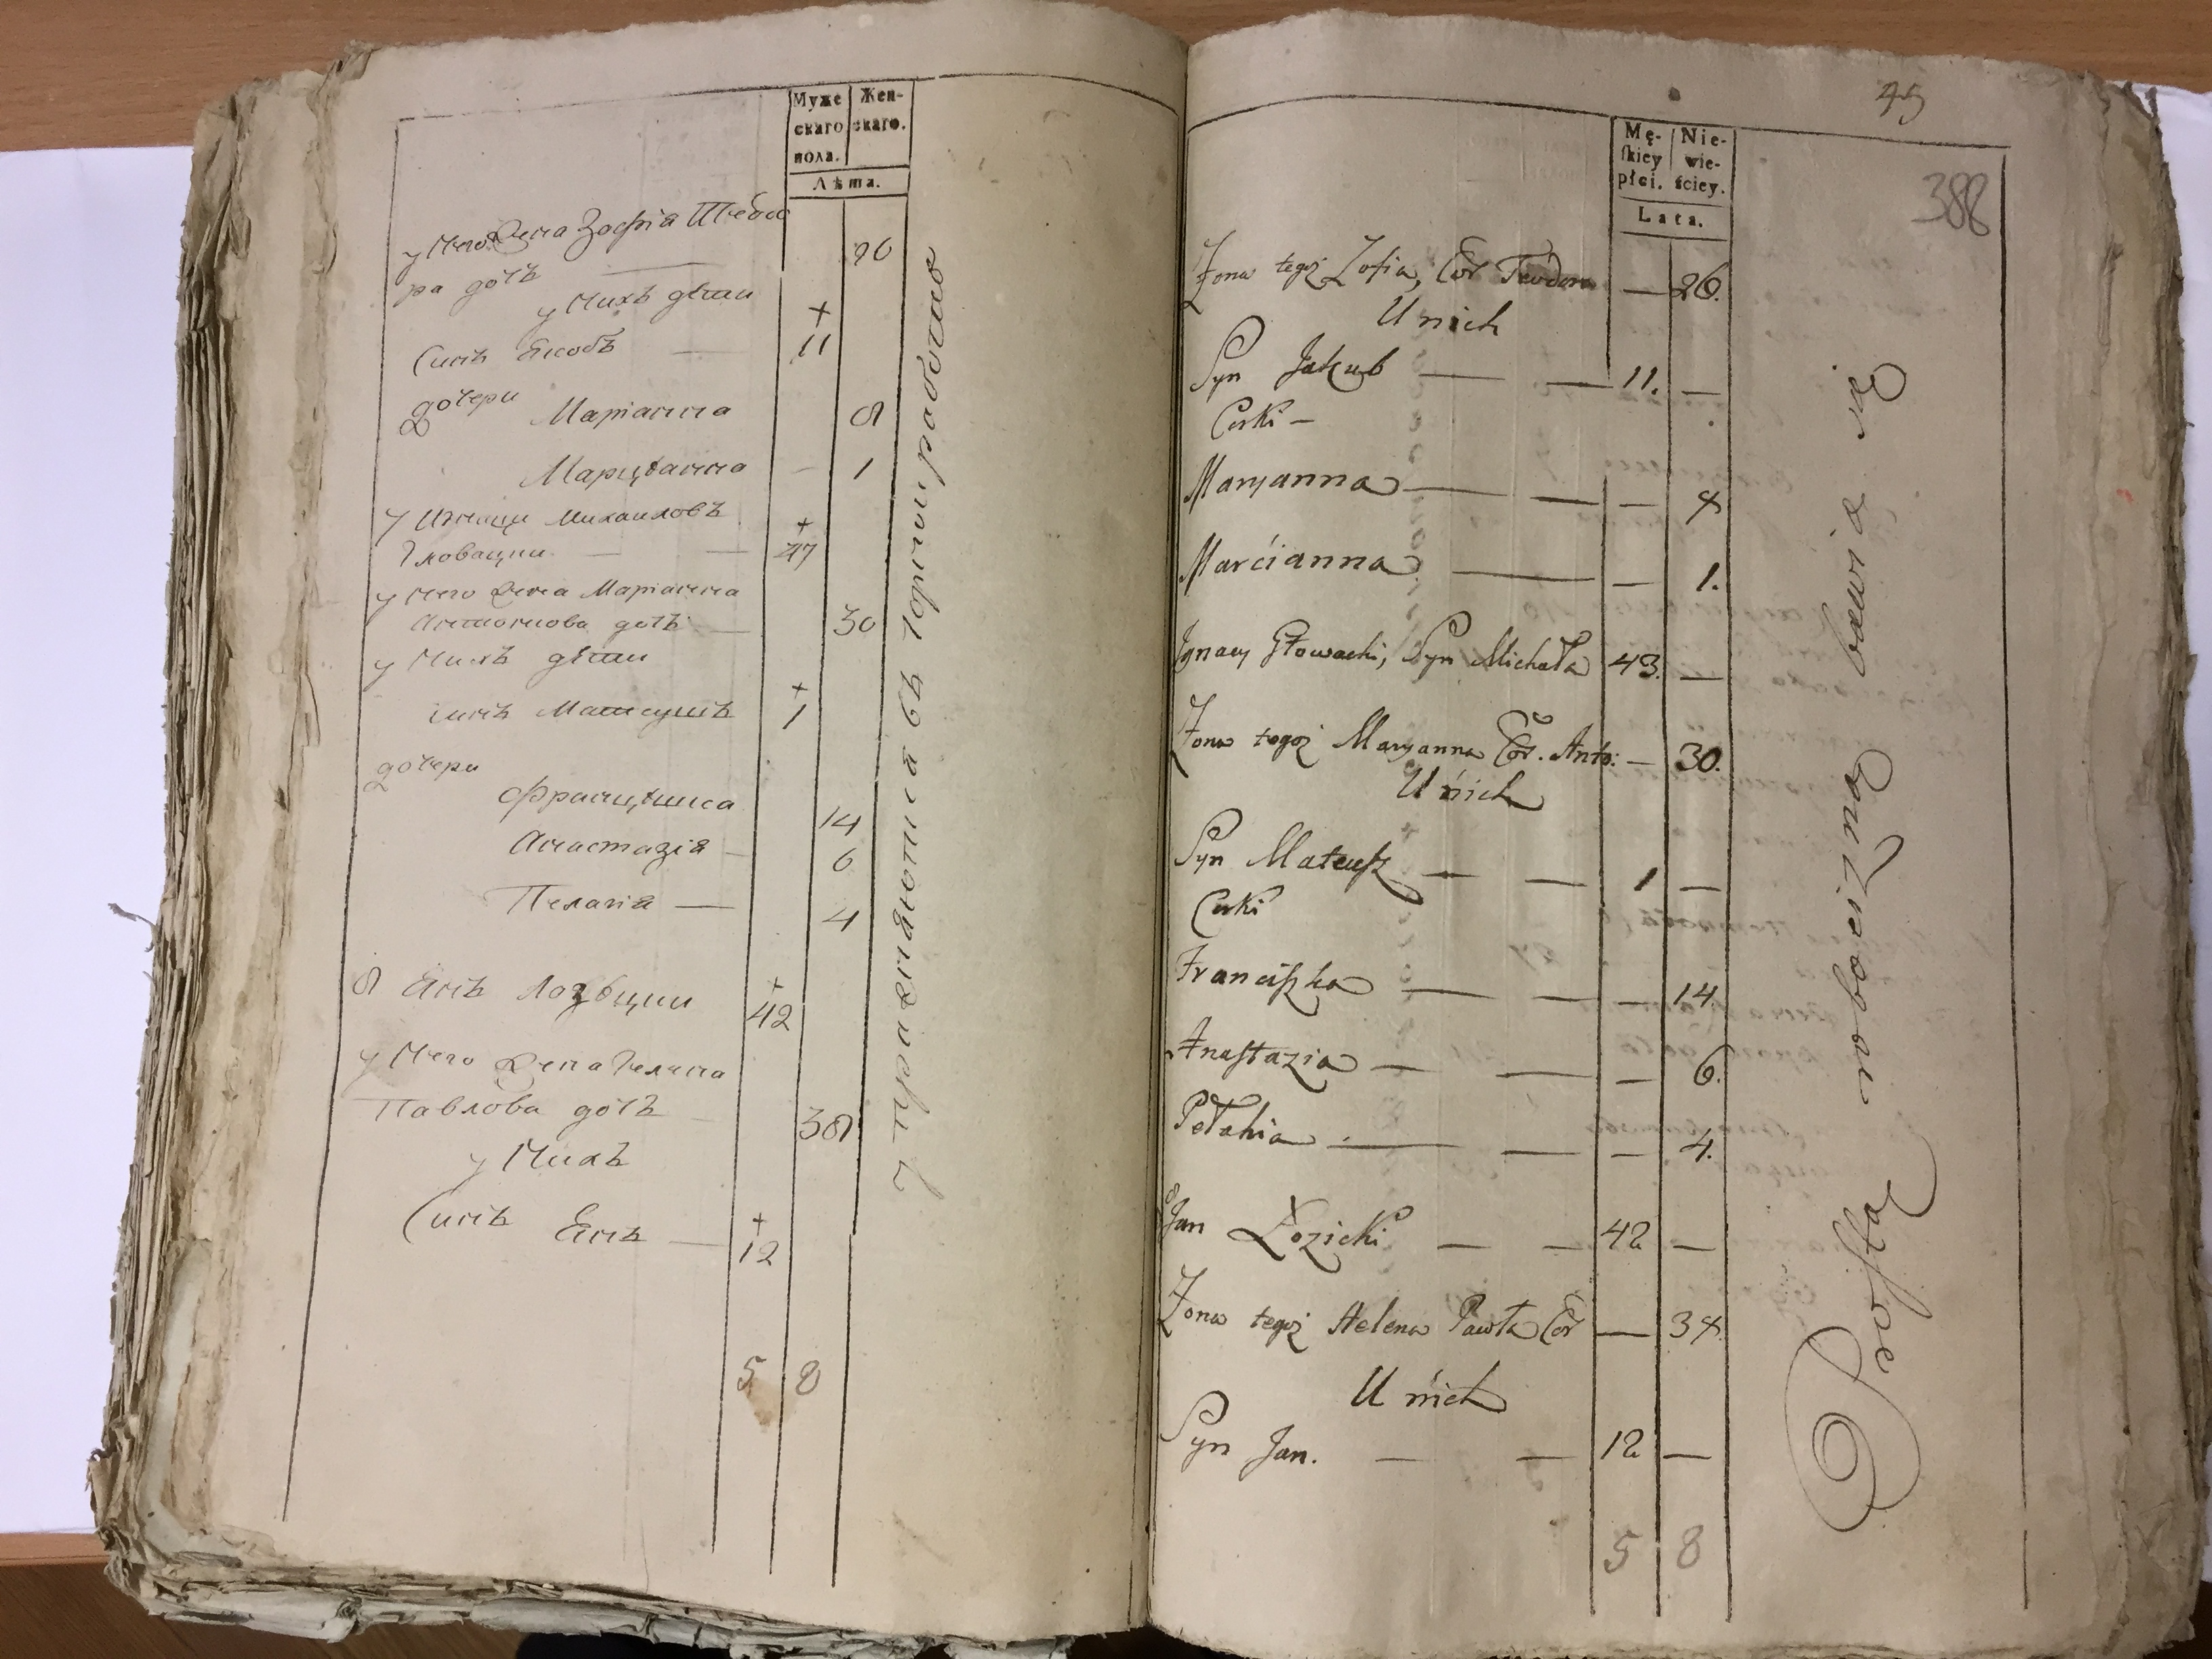 Муже
скаго
пола.
Жен-
скаго.
Лѣта.
у него жена Зофія Теодо
ра дочь 26
у нихъ дѣти
Синъ Якобъ — + 11
дочери Маріанна 8
Марцѣанна — 1
у Игнаци Михаиловъ
Гловацки — — + 47
у него жена Маріанна
Антонова дочь — 30
у нихъ дѣти
синъ Матеушъ + 1
дочери
Францѣшка 14
Анастазія — 6
Пелагія — 4
8 Янъ Лозѣцки + 42
у него жена Гелена
Павлова дочь — 38
у нихъ
Синъ Янъ — + 12
5 8
упражняются въ чорной работе
45
388
Mę-
ſkiey
płci.
Nie-
wie-
ściey.
Lata.
Żona tegoż Zofia, Cór Teodora — 26.
U nich
Syn Jakub — — 11. —
Corki —
Maryanna — — — 8
Marcianna — — 1.
Ignacy Głowacki, Syn Michała 43. —
Żona tegoż Maryanna Cór. Anto: — 30.
U nich
Syn Mateuſz — — 1 —
Corki
Franciſzka — — — 14.
Anaſtazia — — — 6.
Pełahia — — — 4.
8 Jan Łozicki — — 42 —
Żona tegoż Helena Pawła Cór — 38.
U nich
Syn Jan. — — 12 —
5 8
Proſtą robocizną bawią się